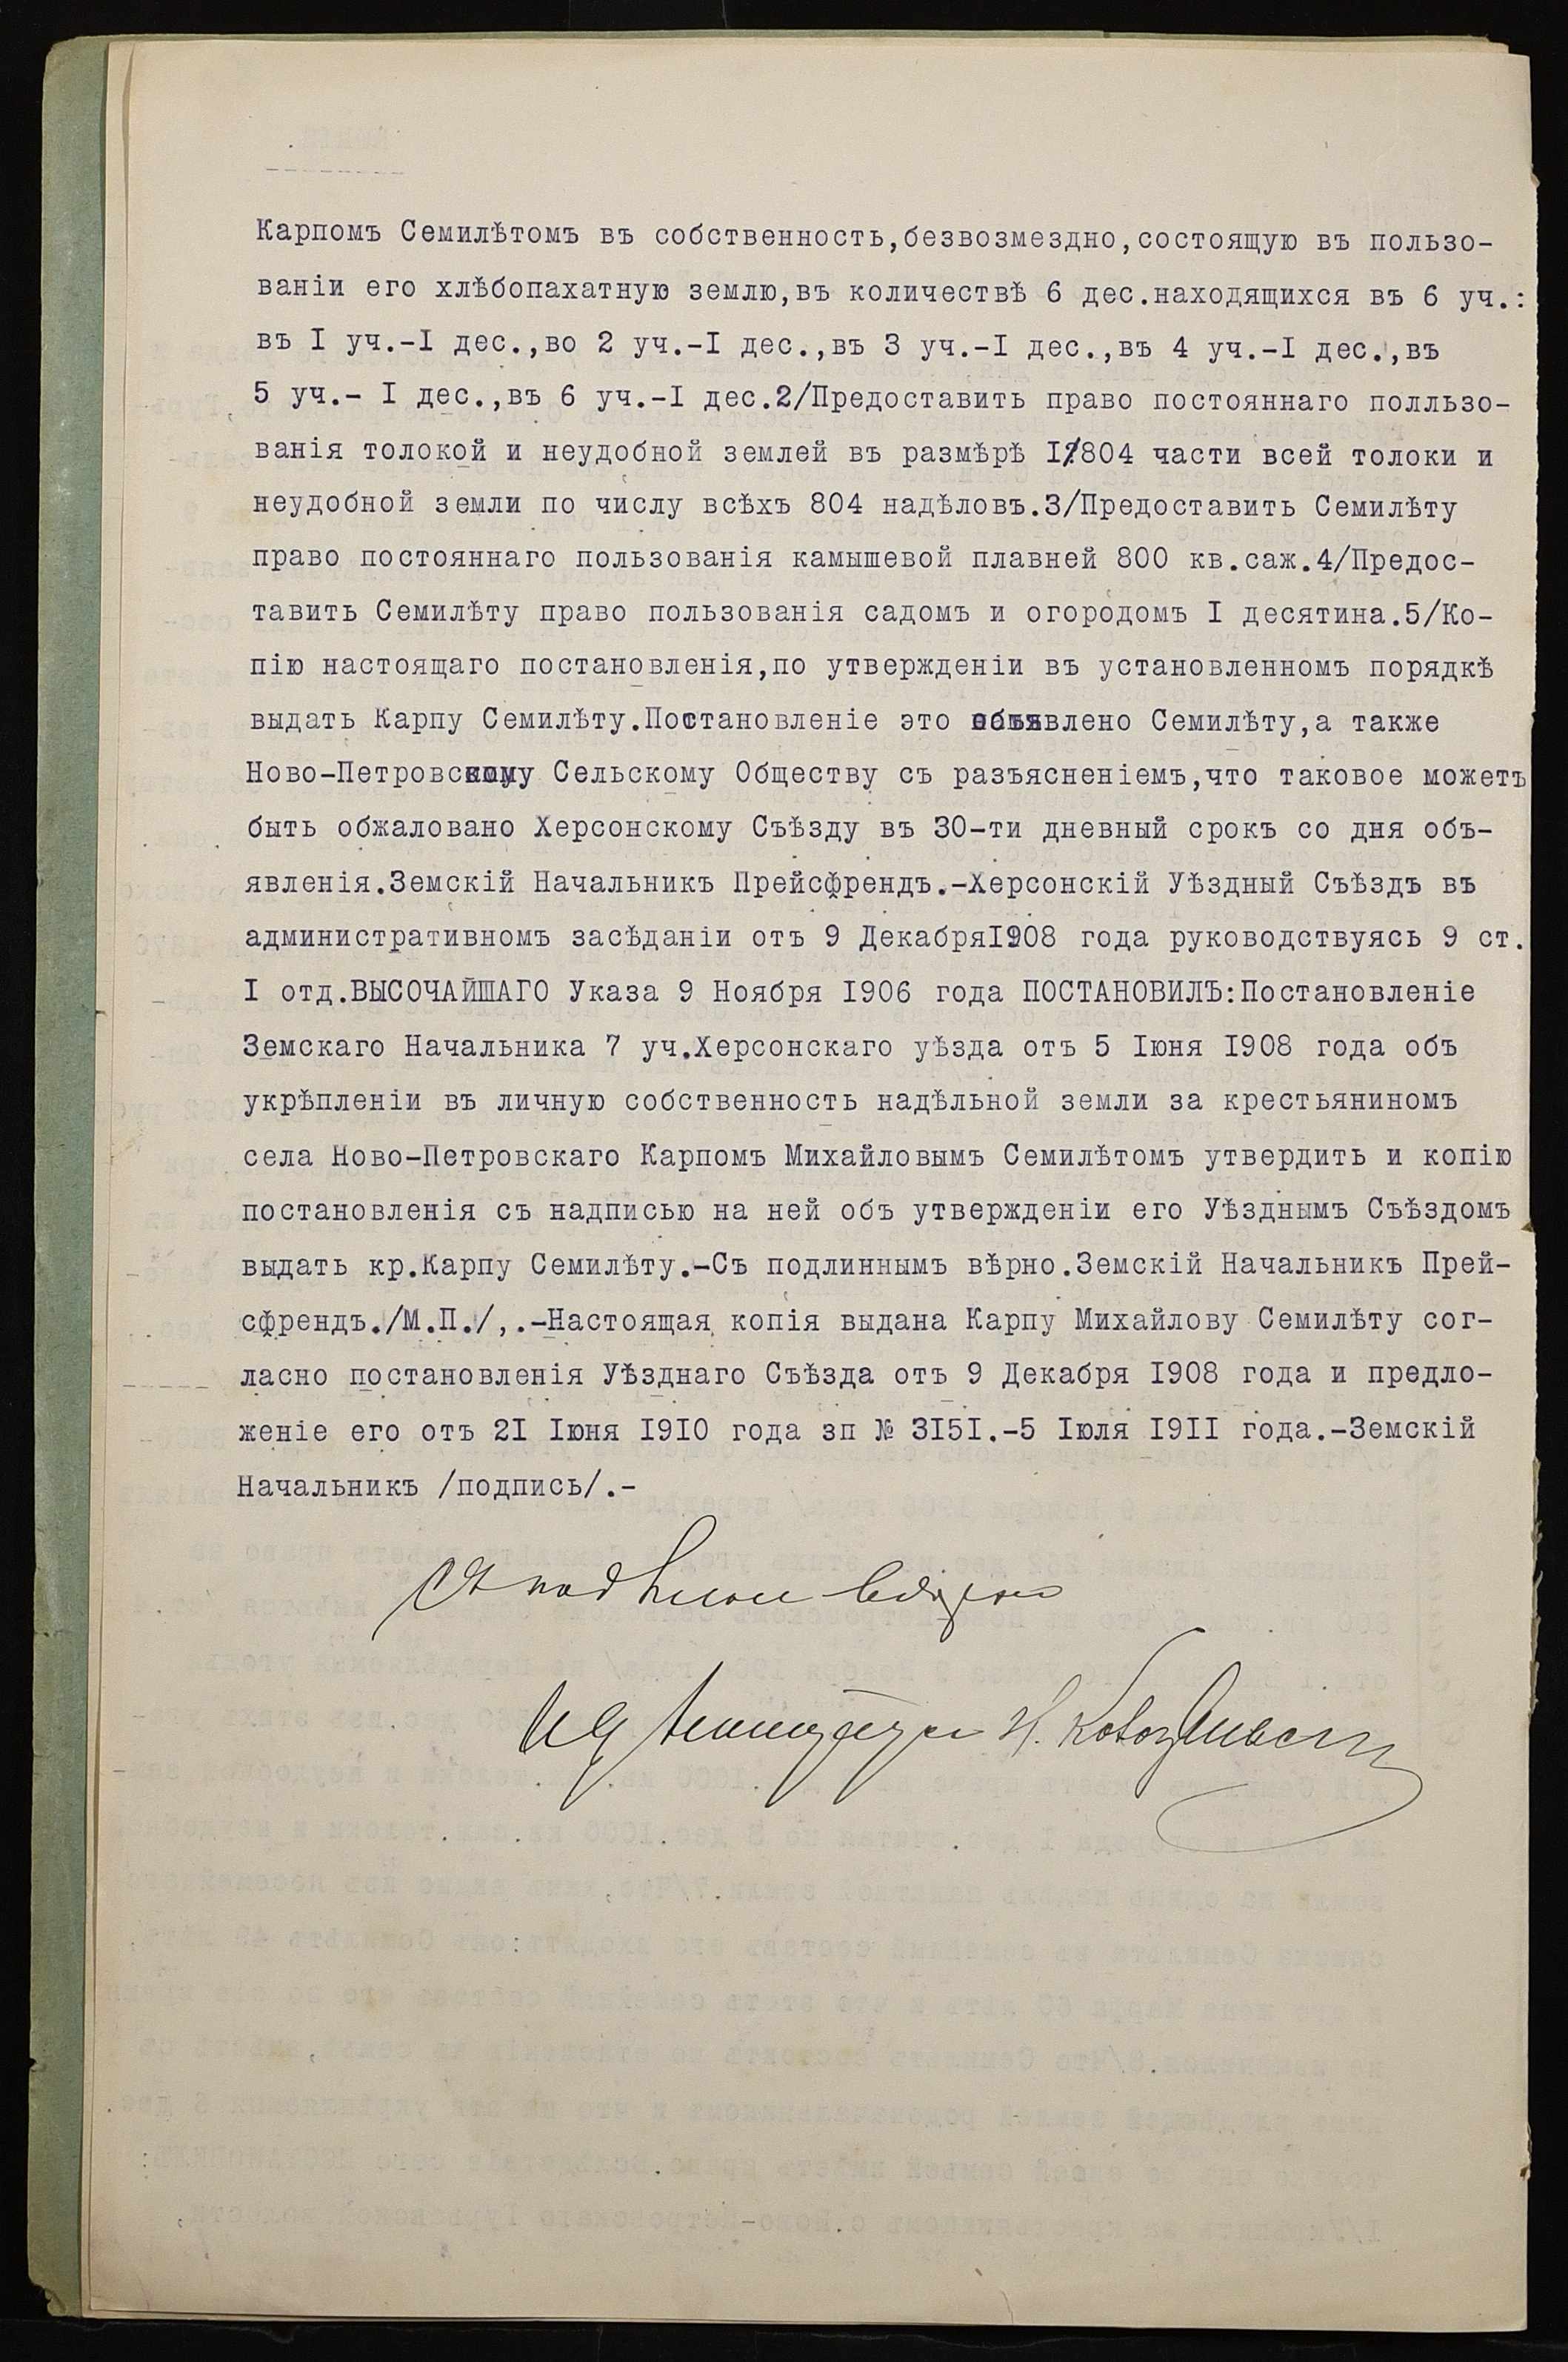 Карпомъ Семилѣтомъ въ собственность,безвозмездно,состоящую въ пользо-
ваніи его хлѣбопахатную землю,въ количествѣ 6 дес.находящихся въ 6 уч.:
въ I уч.-I дес.,во 2 уч.-I дес.,въ 3 уч.-I дес.,въ 4 уч.-I дес.,въ
5 уч.- I дес.,въ 6 уч.-I дес.2/Предоставить право постояннаго полльзо-
ванія толокой и неудобной землей въ размѣрѣ I/804 части всей толоки и
неудобной земли по числу всѣхъ 804 надѣловъ.3/Предоставить Семилѣту
право постояннаго пользованія камышевой плавней 800 кв.саж.4/Предос-
тавить Семилѣту право пользованія садомъ и огородомъ I десятина.5/Ко-
пію настоящаго постановленія,по утвержденіи въ установленномъ порядкѣ
выдать Карпу Семилѣту.Постановленіе это объявлено Семилѣту,а также
Ново-Петровскому Сельскому Обществу съ разъясненіемъ,что таковое можетъ
быть обжаловано Херсонскому Съѣзду въ 30-ти дневный срокъ со дня объ-
явленія.Земскій Начальникъ Прейсфрендъ.-Херсонскій Уѣздный Съѣздъ въ
административномъ засѣданіи отъ 9 ДекабряI908 года руководствуясь 9 ст.
I отд.ВЫСОЧАЙШАГО Указа 9 Ноября I906 года ПОСТАНОВИЛЪ:Постановленіе
Земскаго Начальника 7 уч.Херсонскаго уѣзда отъ 5 Іюня I908 года объ
укрѣпленіи въ личную собственность надѣльной земли за крестьяниномъ
села Ново-Петровскаго Карпомъ Михайловымъ Семилѣтомъ утвердить и копію
постановленія съ надписью на ней объ утвержденіи его Уѣзднымъ Съѣздомъ
выдать кр.Карпу Семилѣту.-Съ подлиннымъ вѣрно.Земскій Начальникъ Прей-
сфрендъ./М.П./,.-Настоящая копія выдана Карпу Михайлову Семилѣту сог-
ласно постановленія Уѣзднаго Съѣзда отъ 9 Декабря I908 года и предло-
женіе его отъ 2I Іюня I9I0 года зп № 3I5I.-5 Іюля I9II года.-Земскій
Начальникъ /подпись/.-